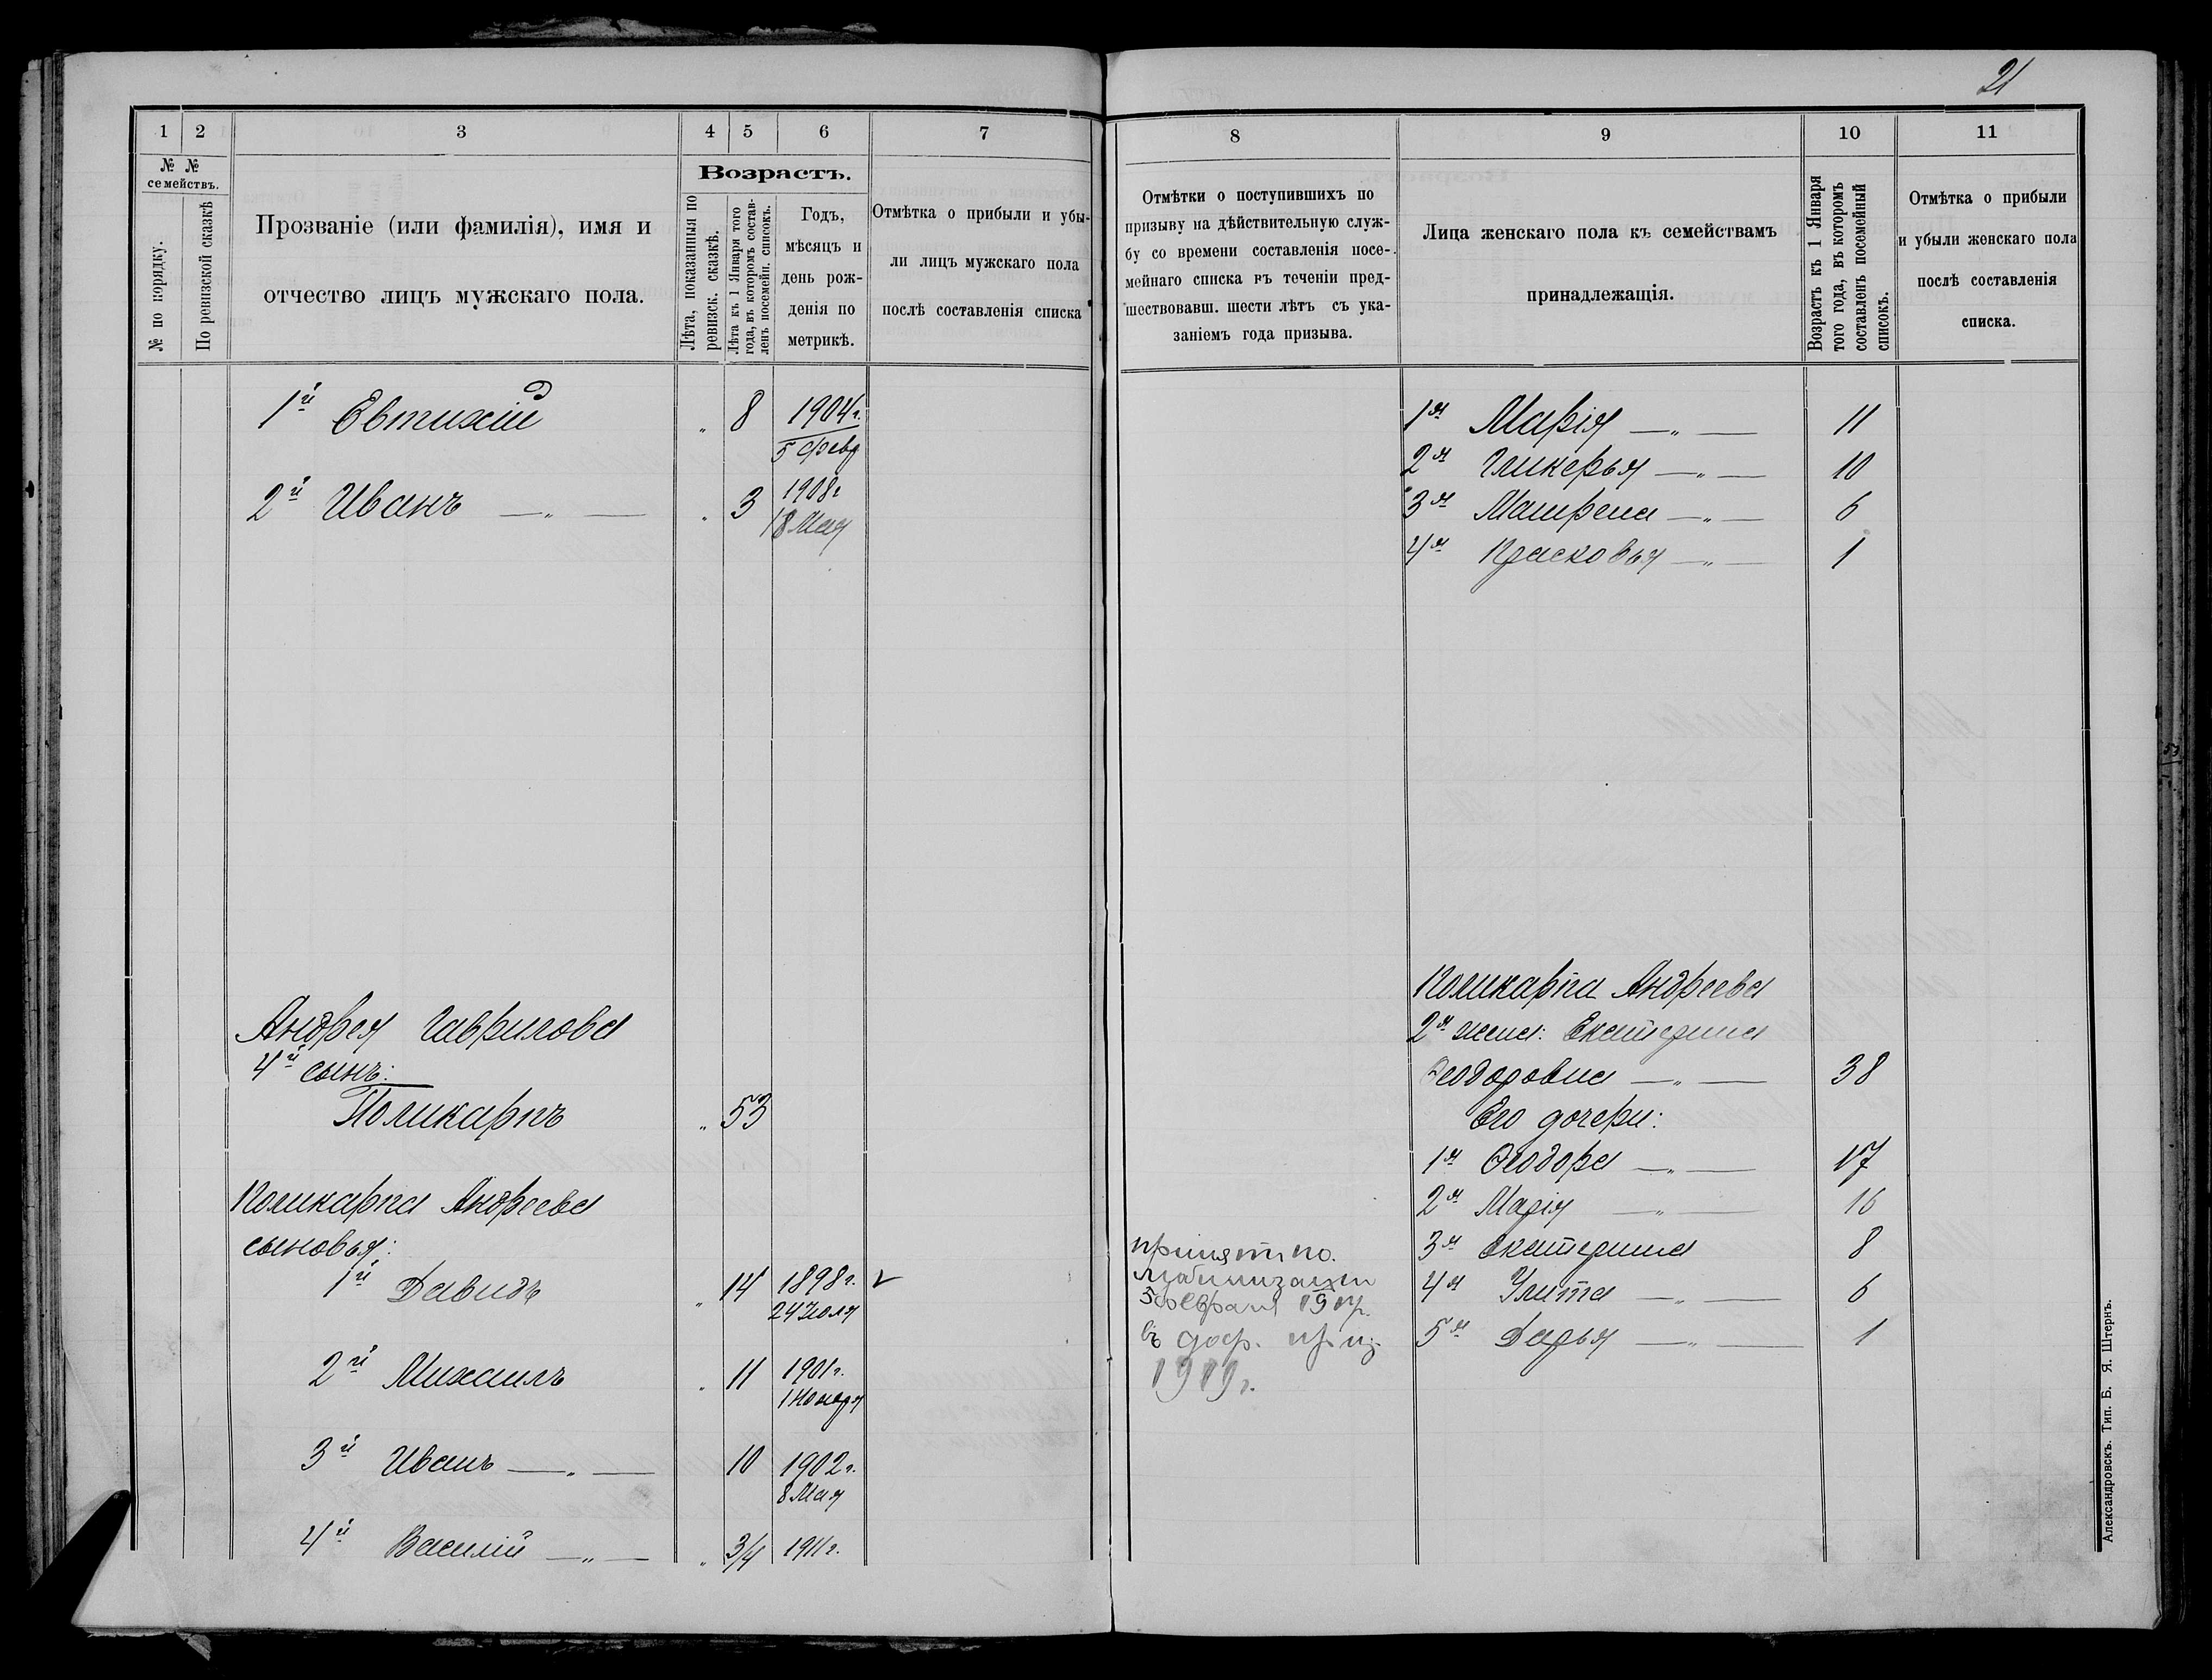 21
1
2
3
4
5
6
7
№ №
семействъ.
№ по порядку.
По ревизской сказкѣ
Прозваніе (или фамилія), имя и
отчество лицъ мужскаго пола.
Возрастъ.
Лѣта, показанныя по
ревизск. сказкѣ.
Лѣта къ 1 Января того
года, въ которомъ состав-
ленъ посемейн. списокъ.
Годъ,
мѣсяцъ и
день рож-
денія по
метрикѣ.
Отмѣтка о прибыли и убы-
ли лицъ мужскаго пола
послѣ составленія списка
1й Евтихій „ 8 1904г.
5 февр
2й Иванъ —„— „ 3 1908г
18 Мая
Андрея Гаврилова
4й сынъ:
Поликарпъ „ 53
Поликарпа Андреева
сыновья:
1й Давидъ „ 14 1898г. v
24 Іюля
2й Михаилъ „ 11 1901г.
1 Ноября
3й Иванъ —„— 10 1902г.
8 Мая
4й Василій —„— „ 3/4 1911г.
8
9
10
11
Отмѣтки о поступившихъ по
призыву на дѣйствительную служ-
бу со времени составленія посе-
мейнаго списка въ теченіи пред-
шествовавш. шести лѣтъ съ ука-
заніемъ года призыва.
Лица женскаго пола къ семействамъ
принадлежащія.
Возрастъ къ 1 Января
того года, въ которомъ
составленъ посемейный
списокъ.
Отмѣтка о прибыли
и убыли женскаго пола
послѣ составленія
списка.
1я Марія —„— 11
2я Гликерья —„— 10
3я Матрена —„— 6
4я Прасковья —„— 1
Поликарпа Андреева
2я жена: Екатерина
Ѳеодоровна —„— 38
Его дочери:
1я Ѳеодора —„— 17
2я Марія —„— 16
3я Екатерина 8
4я Улита —„— 6
5я Дарья —„— 1
принят по
мобилизации
5 февраля
въ доср. приз
1919г.
Александровскъ. Тип. Б. Я. Штернъ.